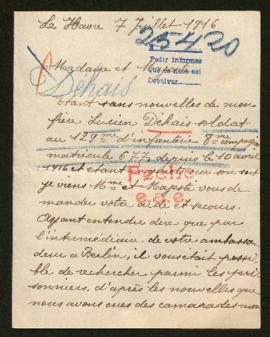 Le Havre 7 Juillet 1916
25420
Madame et
Pedir informes
Dehais
Devolver
étant sans nouvelles de mon
frère Lucien Dehais soldat
au 129me d'infanterie 8me compagnie
matricule depuis le 10 avril
1916 et étant sur son sort
je viens Mme et Majesté vous de-
mander votre aide et secours.
Ayant entendu dire que par
l'intermédiaire de votre ambassa-
deur a Berlin, il vous était possi-
ble de rechercher parmi les pri-
sonniers, d'après les nouvelles que
nous avons eues des camarades mon